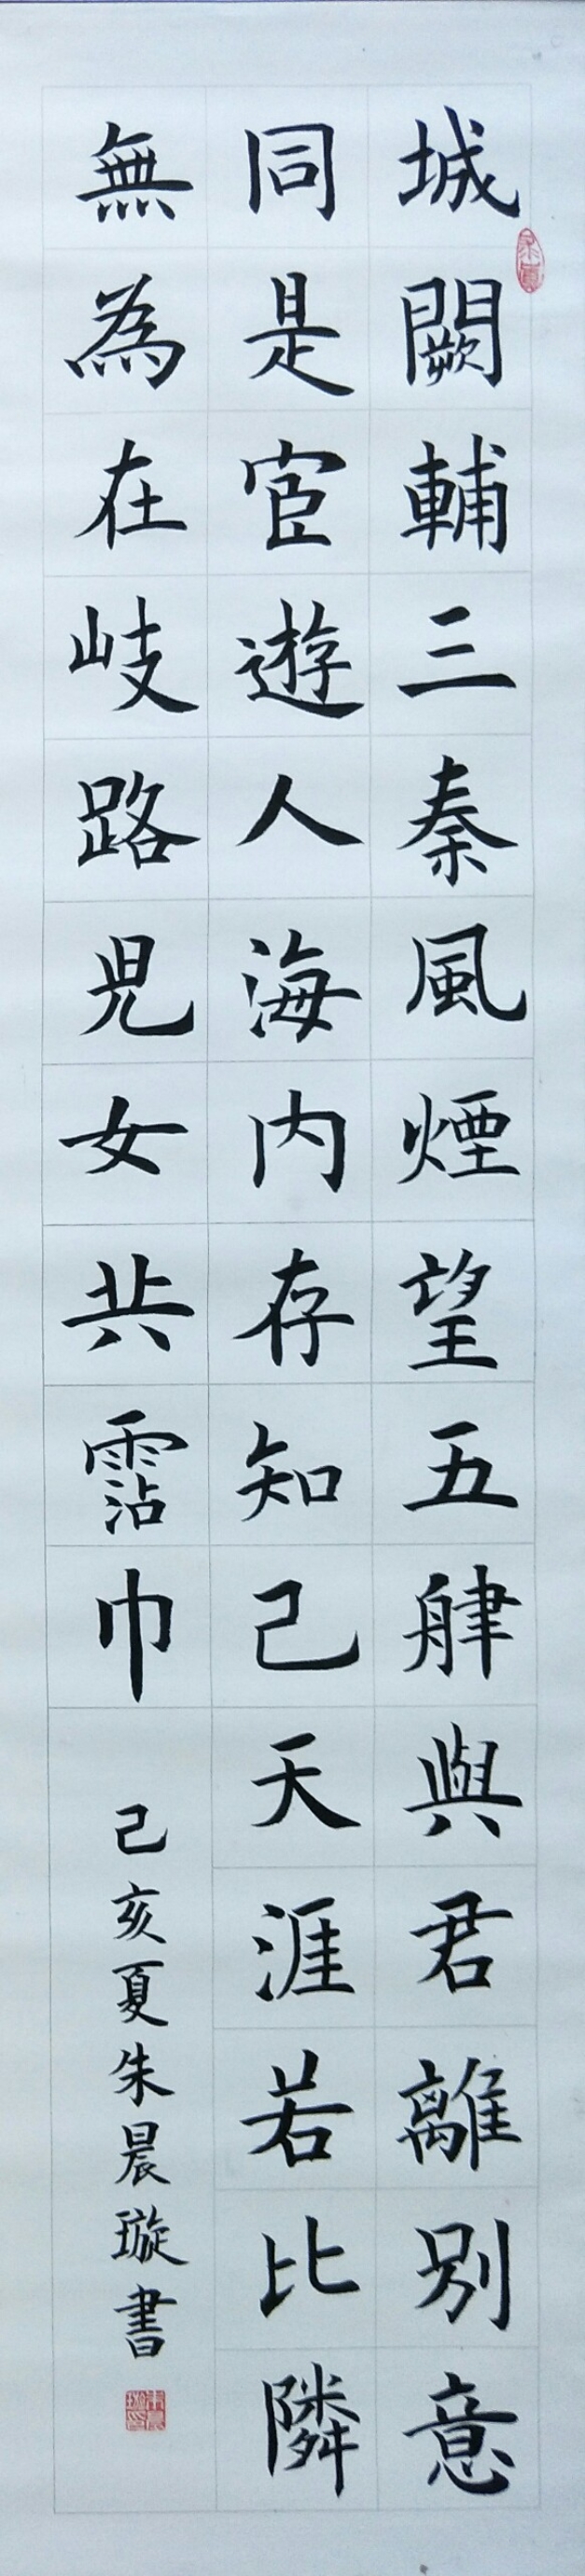 城闕輔三秦風煙望五津與君離別意
同是宦遊人海内存知己天涯若比隣
無為在岐路兒女共霑巾
己亥夏朱晨璇書